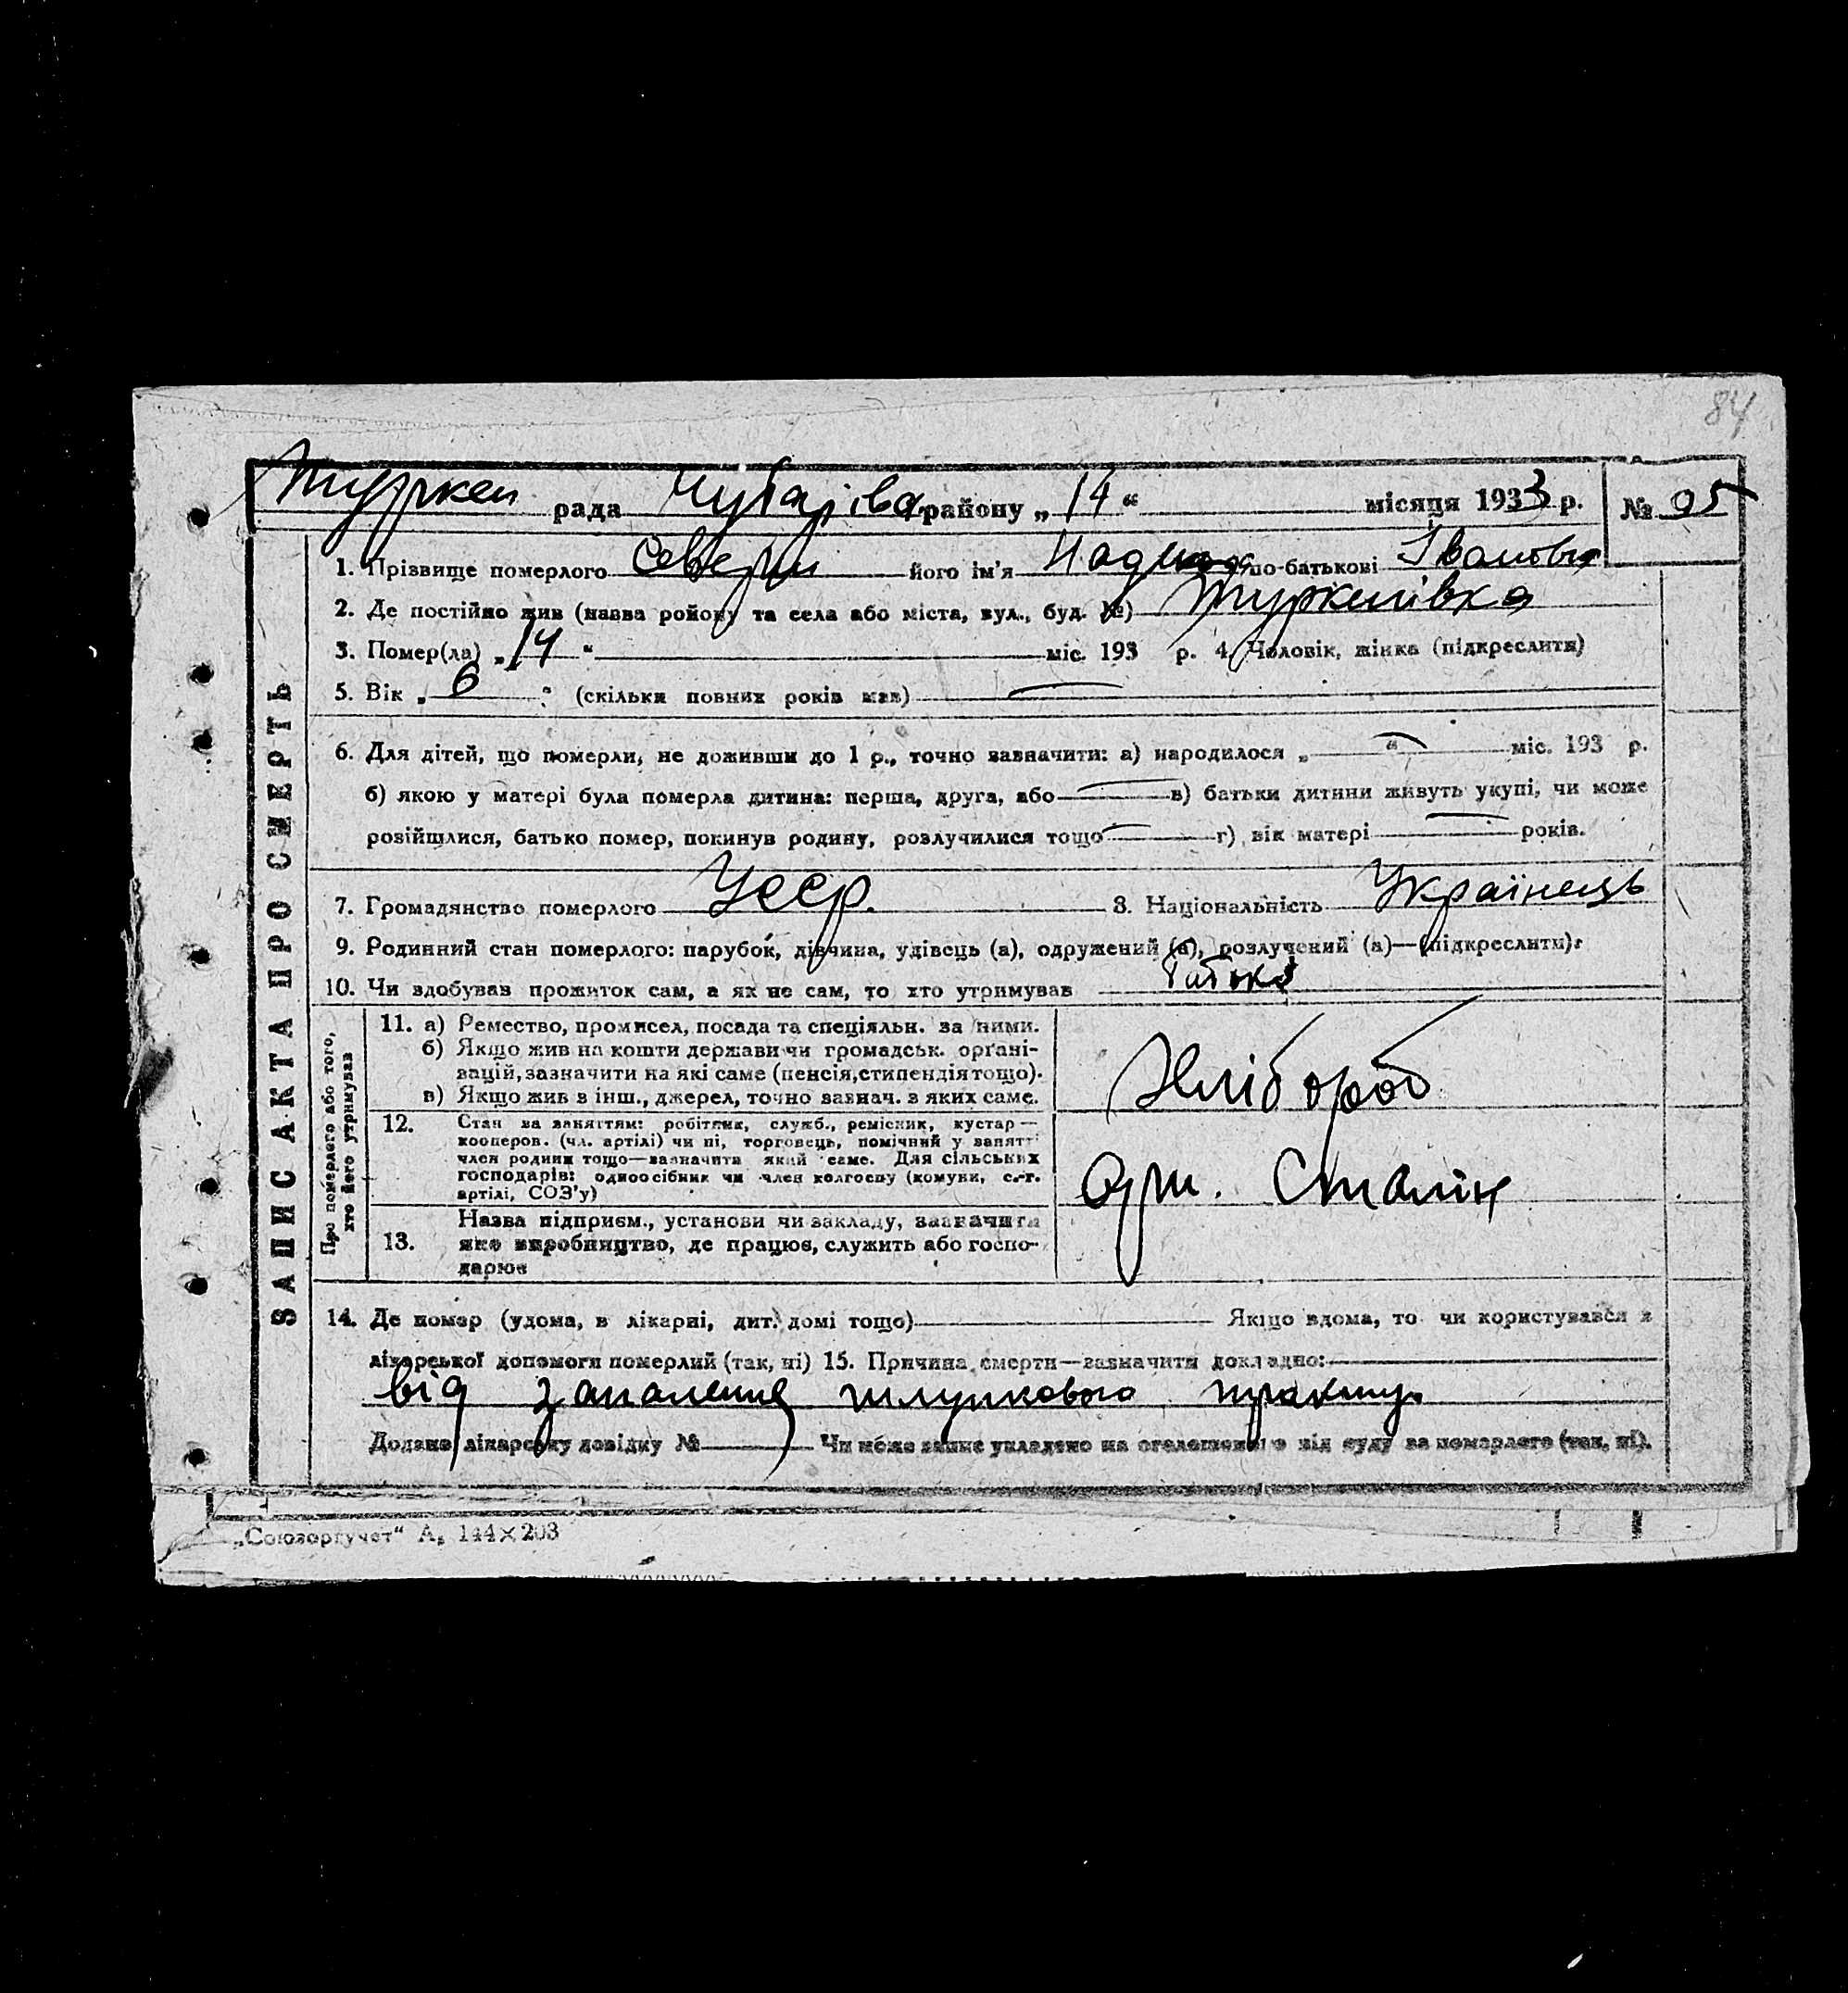 84
Туркен рада Чубарівс. району „ 14 “ місяця 1933 р. № 95
ЗАПИС АКТА ПРО СМЕРТЬ
1. Прізвище померлого його ім'я по-батькові
2. Де постійно жив (назва ройону та села або міста, вул., буд. №) Туркенівка
3. Помер(ла) „ 14 “ міс. 193 р. 4. Чоловік, жінка (підкреслити)
5. Вік „ 6 “ (скільки повних років мав)
6. Для дітей, що померли, не доживши до 1 р., точно зазначити: а) народилося „ “ міс. 193 р.
б) якою у матері була померла дитина: перша, друга, або в) батьки дитини живуть укупі, чи може
розійшлися, батько помер, покинув родину, розлучилися тощо г) вік матері років.
7. Громадянство померлого Усср. 8. Національність Українець
9. Родинний стан померлого: парубок, дівчина, удівець (а), одружений (а), розлучений (а)—(підкреслити):
10. Чи здобував прожиток сам, а як не сам, то хто утримував батько
Про померлого або того,
хто його утримував
11. а) Ремество, промисел, посада та спеціяльн. за ними.
б) Якщо жив на кошти держави чи громадськ. органі-
зацій, зазначити на які саме (пенсія, стипендія тощо).
в) Якщо жив в інш., джерел, точно зазнач. з яких саме.
Хлібороб
12. Стан за заняттям: робітник, служб., ремісник, кустар—
кооперов. (чл. артілі) чи ні, торговець, помічний у занятті
член родини тощо—зазначити який саме. Для сільських
господарів: одноосібник чи член колгоспу (комуни, с.-г.
артілі, СОЗ'у)
Арт. Сталін
13. Назва підприєм., установи чи закладу, зазначити
яке виробництво, де працює, служить або госпо-
дарює
14. Де помер (удома, в лікарні, дит. домі тощо) Якщо вдома, то чи користувався з
лікарської допомоги померлий (так, ні) 15. Причина смерти—зазначити докладно:
від запалення шлункового тракту.
Додано лікарську довідку № Чи може запис укладено на оголошення від суду за померлого (так, ні).
„Союзоргучет“ А₅ 144×203